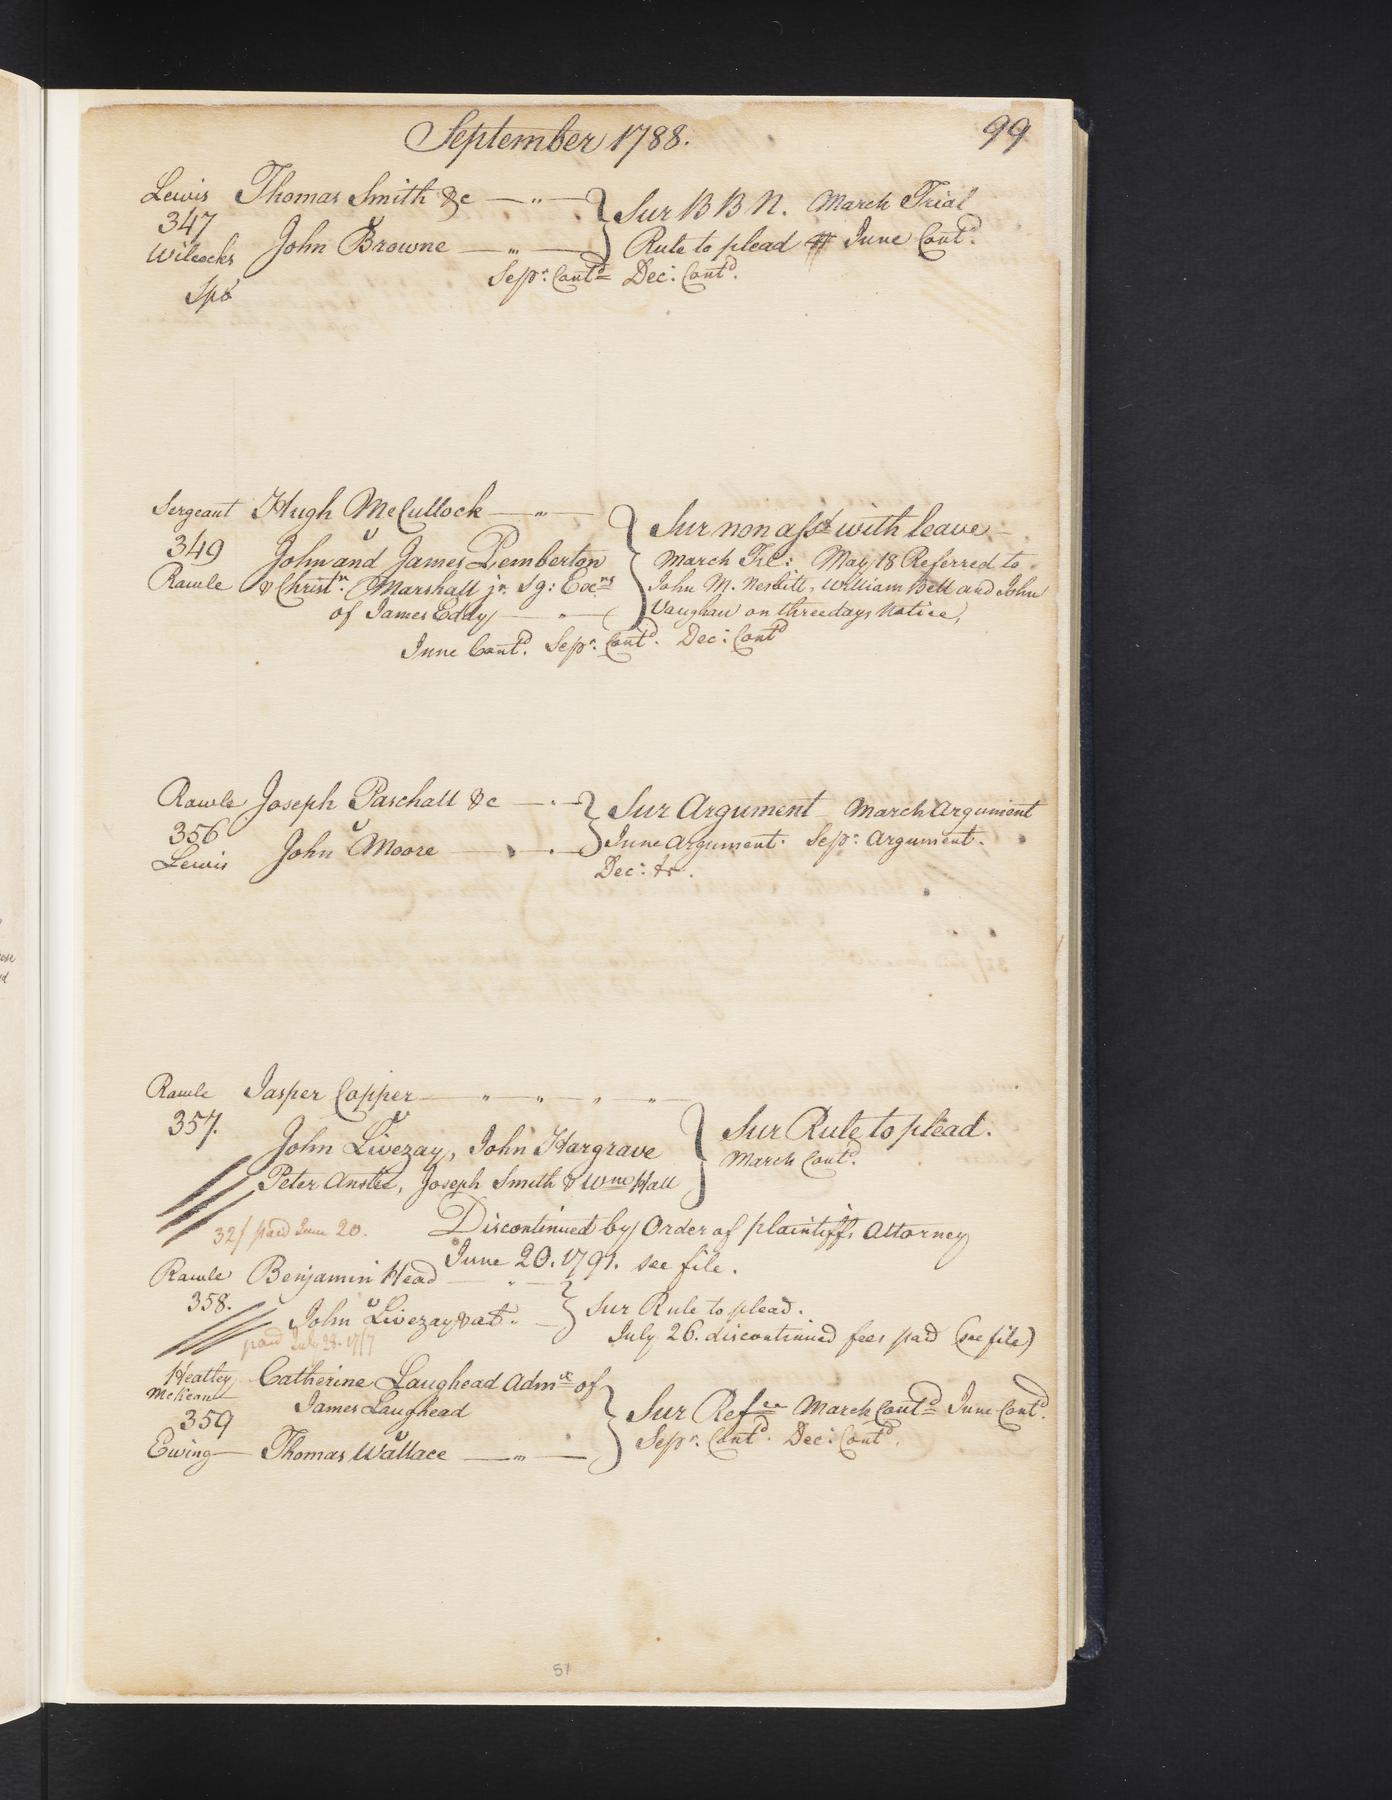 September 1788.
99
Lewis Thomas Smith &c Sur B B N. March Trial
347 v
Wilcocks John Browne Rule to plead June Cont^d.
Sep^r: Cont^d Dec: Cont^d.
Sergeant Hugh McCullock Sur non ass^t with leave
349 v John and James Pemberton March Tri: May 18 Referred to
Rawle & Christ^r. Marshall j^r. Sg: Exe^rs John M. Nesbitt, William Bell and John
of James Eddy Vaughan on three days Notice,
June Cont^d. Sep^r: Cont^d. Dec: Cont^d
Rawle Joseph Paschall &c Sur Argument March Argument
356 v
Lewis John Moore June Argument. Sep^r: Argument.
Dec:
Rawle Jasper Copper
357. v Sur Rule to plead.
John Livezay, John Hargrave March Cont^d.
Peter Anster, Joseph Smith & W^m Hall
32/ paid June 20. Discontinued by Order of plaintiffs Attorney
June 20. 1791. see file.
Rawle Benjamin Head
358. v John Livezay & al. Sur Rule to plead.
paid July 28. July 26. discontinued fees paid (see file)
Heatley Catherine Laughead Adm^x of
McKean James Laughead Sur Ref^ee March Cont^d June Cont^d.
359 v
Ewing Thomas Wallace Sep^r. Cont^d. Dec: Cont^d.
51